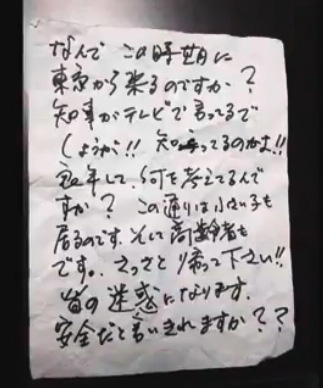 なんで この時期に
東京から来るのですか？
知事がテレビで言ってるで
しょうが!! 知ってるのかよ!!
良い年して、何を考えてるんで
すか？ この通りは小さい子も
居るのです。そして高齢者も
です。さっさと帰って下さい!!
皆の迷惑になります。
安全だと言いきれますか？？